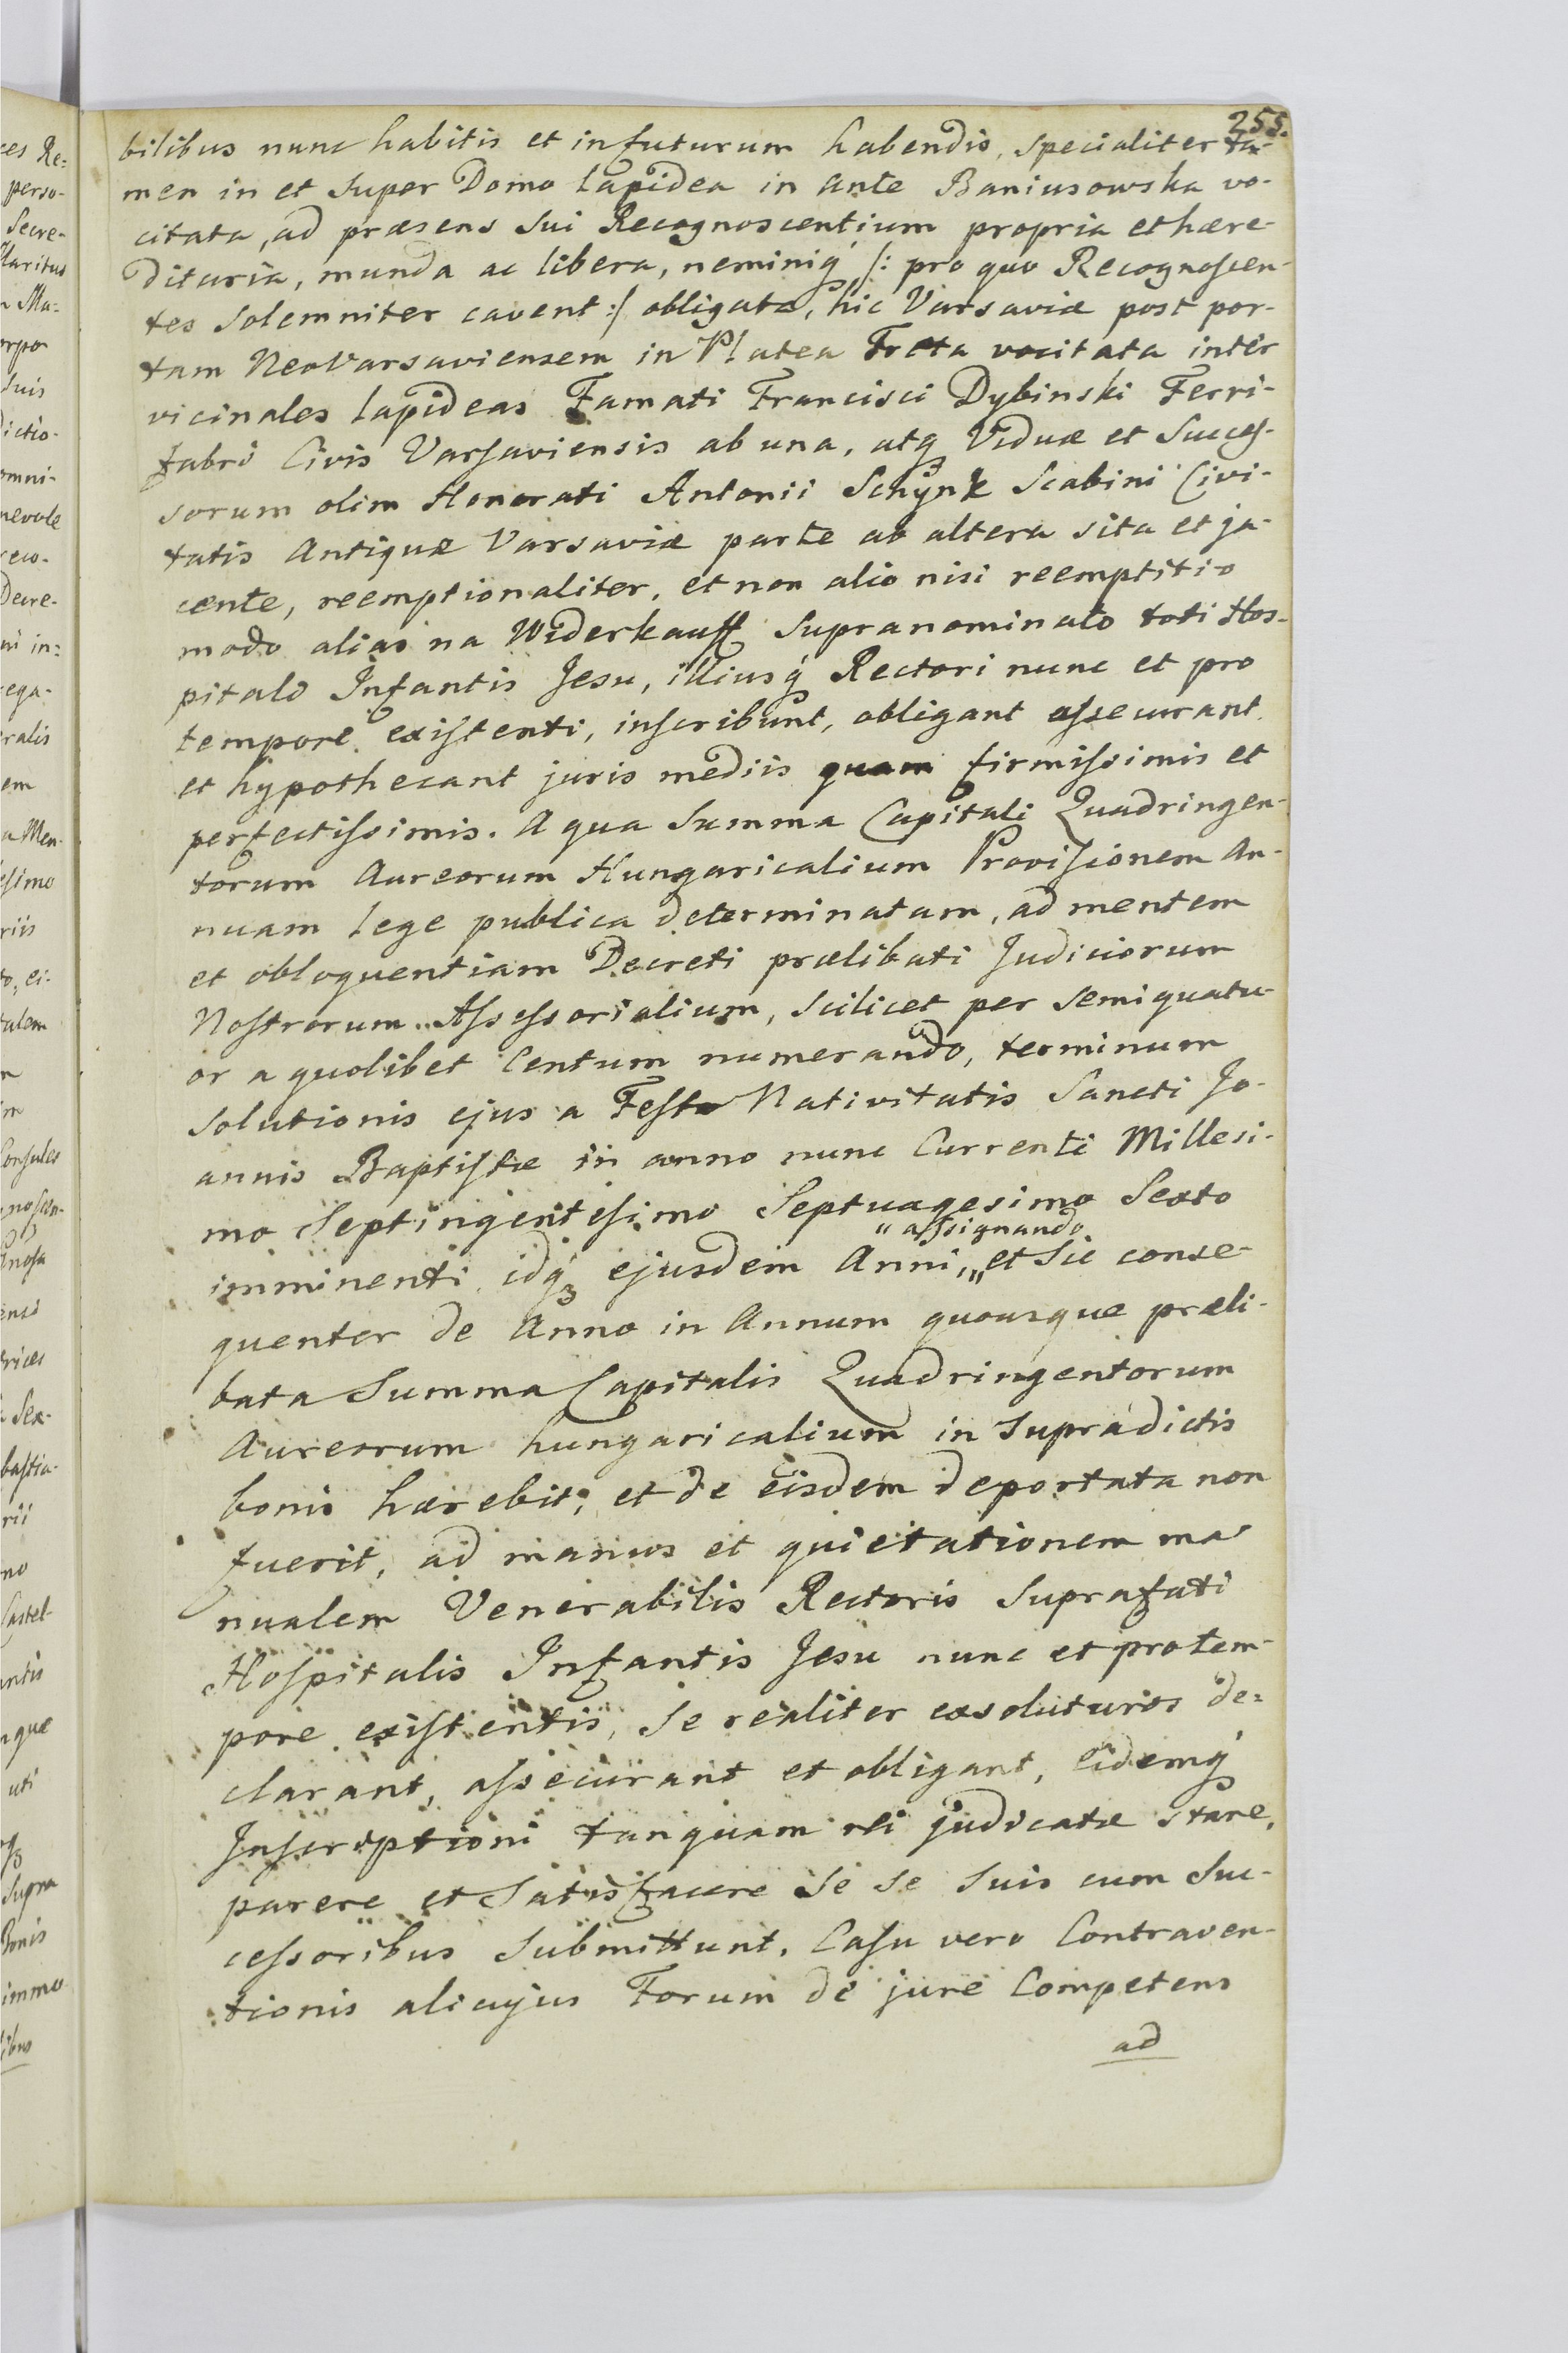 255.
bilibus nunc habitis et in futurum habendis, specialiter ta-
men in et super Domo lapidea in ante Baniusowska vo-
citata, ad præsens sui Recognoscentium propria et hære-
ditaria, munda ac libera, neminiq́ /: pro quo Recognoscen-
tes solemniter cavent :/ obligata, hic Varsaviæ post por-
tam Neovarsaviensem in Platea Freta vocitata inter
vicinales lapideas Famati Francisci Dybinski Ferri-
fabri Civis Varsaviensis ab una, atq́ Viduæ et Succes-
sorum olim Honorati Antonii Schynk Scabini Civi-
tatis Antiquæ Varsaviæ parte ab altera sita et ja-
cente, reemptionaliter, et non alio nisi reemptitio
modo alias na Widerkauff supranominato toti Hos-
pitalo Infantis Jesu, illiusq́ Rectori nunc et pro
tempore existenti, inscribunt, obligant assecurant
et hypothecant juris mediis quam firmissimis et
perfectissimis. A qua Summa Capitali Quadringen-
torum Aureorum Hungaricalium Provisionem An-
nuam lege publica determinatam, ad mentem
et obloquentiam Decreti prælibati Judiciorum
Nostrorum Assessorialium, scilicet per semiquatu-
or a quolibet Centum numerando, terminum
solutionis ejus a Festo Nativitatis Sancti Jo-
annis Baptistæ in anno nunc Currenti Millesi-
mo Septingentesimo Septuagesimo Sexto
" assignando
imminenti idq́ ejusdem Anni, " et sic conse-
quenter de Anno in Annum quousque præli-
bata Summa Capitalis Quadringentorum
Aureorum hungaricalium in supradictis
bonis hærebit, et de eisdem deportata non
fuerit, ad manus et quietationem ma
nualem Venerabilis Rectoris Suprafati
Hospitalis Infantis Jesu nunc et pro tem-
pore existentis, se realiter exsoluturos de=
clarant, assecurant et obligant, eidemq́
Inscriptioni tanquam rei judicatæ stare,
parere et satisfacere se se suis cum Suc-
cessoribus submittunt, Casu vero Contraven-
tionis alicujus Forum de jure Competens
ad